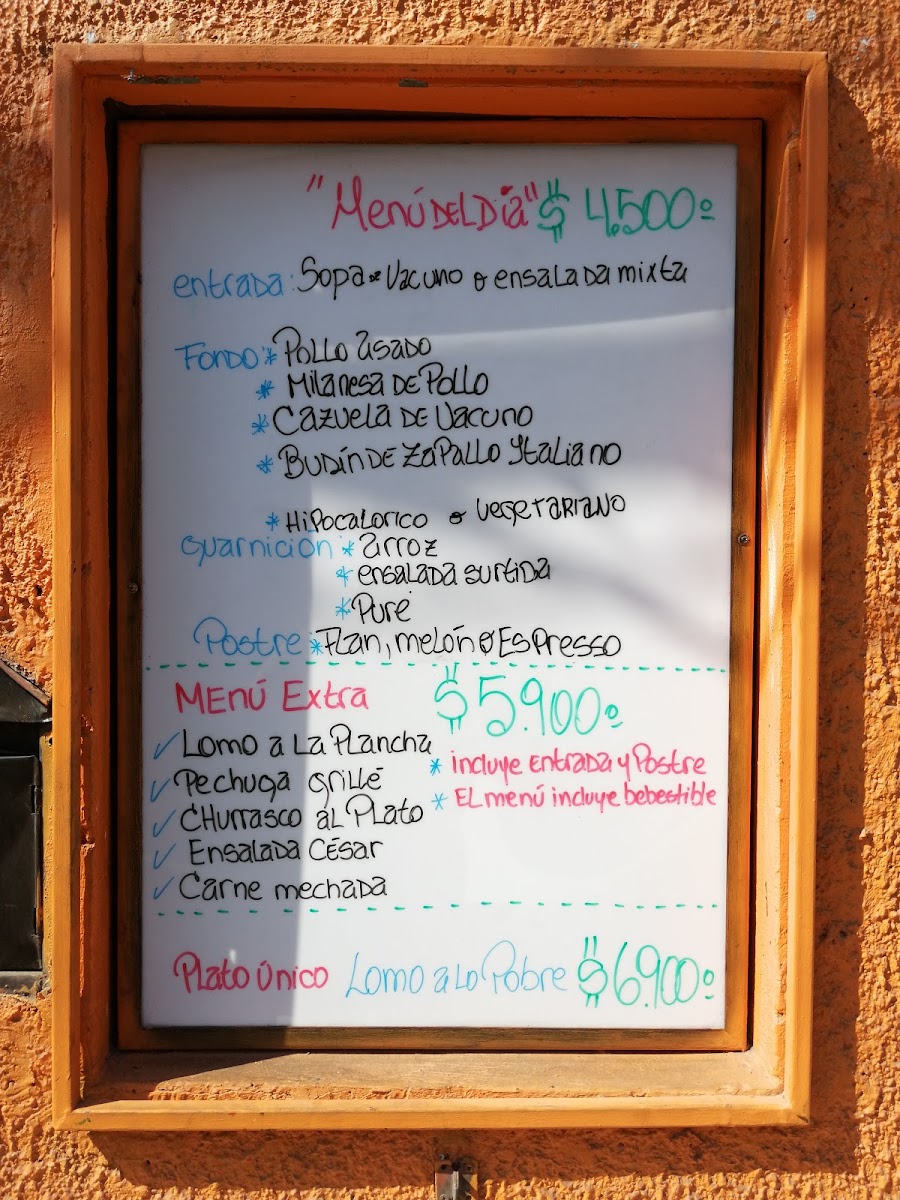 "Menú DEL Día" $ 4.500º
entrada: Sopa de Vacuno o ensalada mixta
Fondo * Pollo asado
* Milanesa DE Pollo
* Cazuela DE Vacuno
* Budín DE Zapallo Italiano
* Hipocalorico o vegetariano
Guarnicion * arroz
* ensalada surtida
* Puré
Postre * Flan, melón o Espresso
MENÚ Extra $ 5.900º
✓ Lomo a La Plancha
* incluye entrada y Postre
✓ Pechuga grillé
* EL menú incluye bebestible
✓ CHurrasco al Plato
✓ Ensalada César
✓ Carne mechada
Plato único Lomo a lo Pobre $ 6.900º